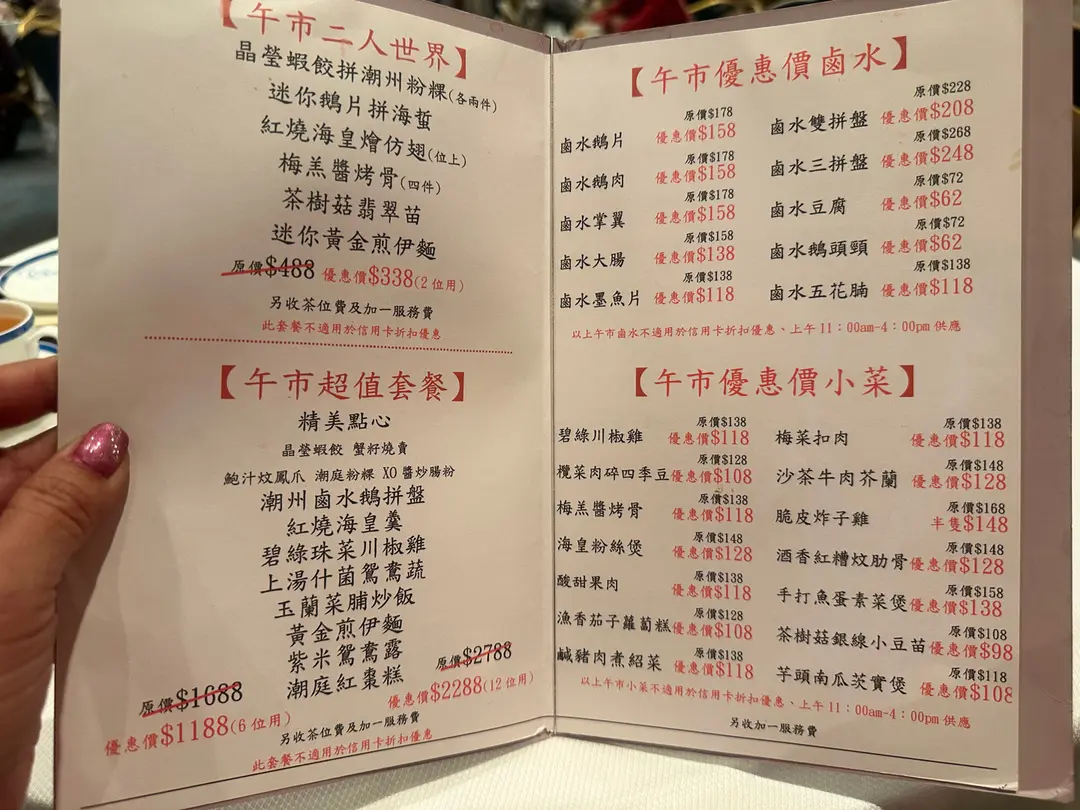 【午市二人世界】
晶瑩蝦餃拼潮州粉粿(各兩件)
迷你鵝片拼海蜇
紅燒海皇燴仿翅(位上)
梅羔醬烤骨(四件)
茶樹菇翡翠苗
迷你黃金煎伊麵
原價$488 優惠價$338(2位用)
另收茶位費及加一服務費
此套餐不適用於信用卡折扣優惠
【午市超值套餐】
精美點心
晶瑩蝦餃 蟹籽燒賣
鮑汁炆鳳爪 潮庭粉粿 XO醬炒腸粉
潮州鹵水鵝拼盤
紅燒海皇羹
碧綠珠菜川椒雞
上湯什菌鴛鴦蔬
玉蘭菜脯炒飯
黃金煎伊麵
紫米鴛鴦露
潮庭紅棗糕
原價$1688
優惠價$1188(6位用)
原價$2788
優惠價$2288(12位用)
另收茶位費及加一服務費
此套餐不適用於信用卡折扣優惠
【午市優惠價鹵水】
鹵水鵝片 原價$178 優惠價$158
鹵水鵝肉 原價$178 優惠價$158
鹵水掌翼 原價$178 優惠價$158
鹵水大腸 原價$158 優惠價$138
鹵水墨魚片 原價$138 優惠價$118
鹵水雙拼盤 原價$228 優惠價$208
鹵水三拼盤 原價$268 優惠價$248
鹵水豆腐 原價$72 優惠價$62
鹵水鵝頭頸 原價$72 優惠價$62
鹵水五花腩 原價$138 優惠價$118
以上午市鹵水不適用於信用卡折扣優惠、上午11：00am-4：00pm供應
【午市優惠價小菜】
碧綠川椒雞 原價$138 優惠價$118
欖菜肉碎四季豆 原價$128 優惠價$108
梅羔醬烤骨 原價$138 優惠價$118
海皇粉絲煲 原價$148 優惠價$128
酸甜果肉 原價$138 優惠價$118
漁香茄子蘿蔔糕 原價$128 優惠價$108
鹹豬肉煮紹菜 原價$138 優惠價$118
梅菜扣肉 原價$138 優惠價$118
沙茶牛肉芥蘭 原價$148 優惠價$128
脆皮炸子雞 原價$168 半隻$148
酒香紅糟炆肋骨 原價$148 優惠價$128
手打魚蛋素菜煲 原價$158 優惠價$138
茶樹菇銀線小豆苗 原價$108 優惠價$98
芋頭南瓜茨實煲 原價$118 優惠價$108
以上午市小菜不適用於信用卡折扣優惠、上午11：00am-4：00pm供應
另收加一服務費